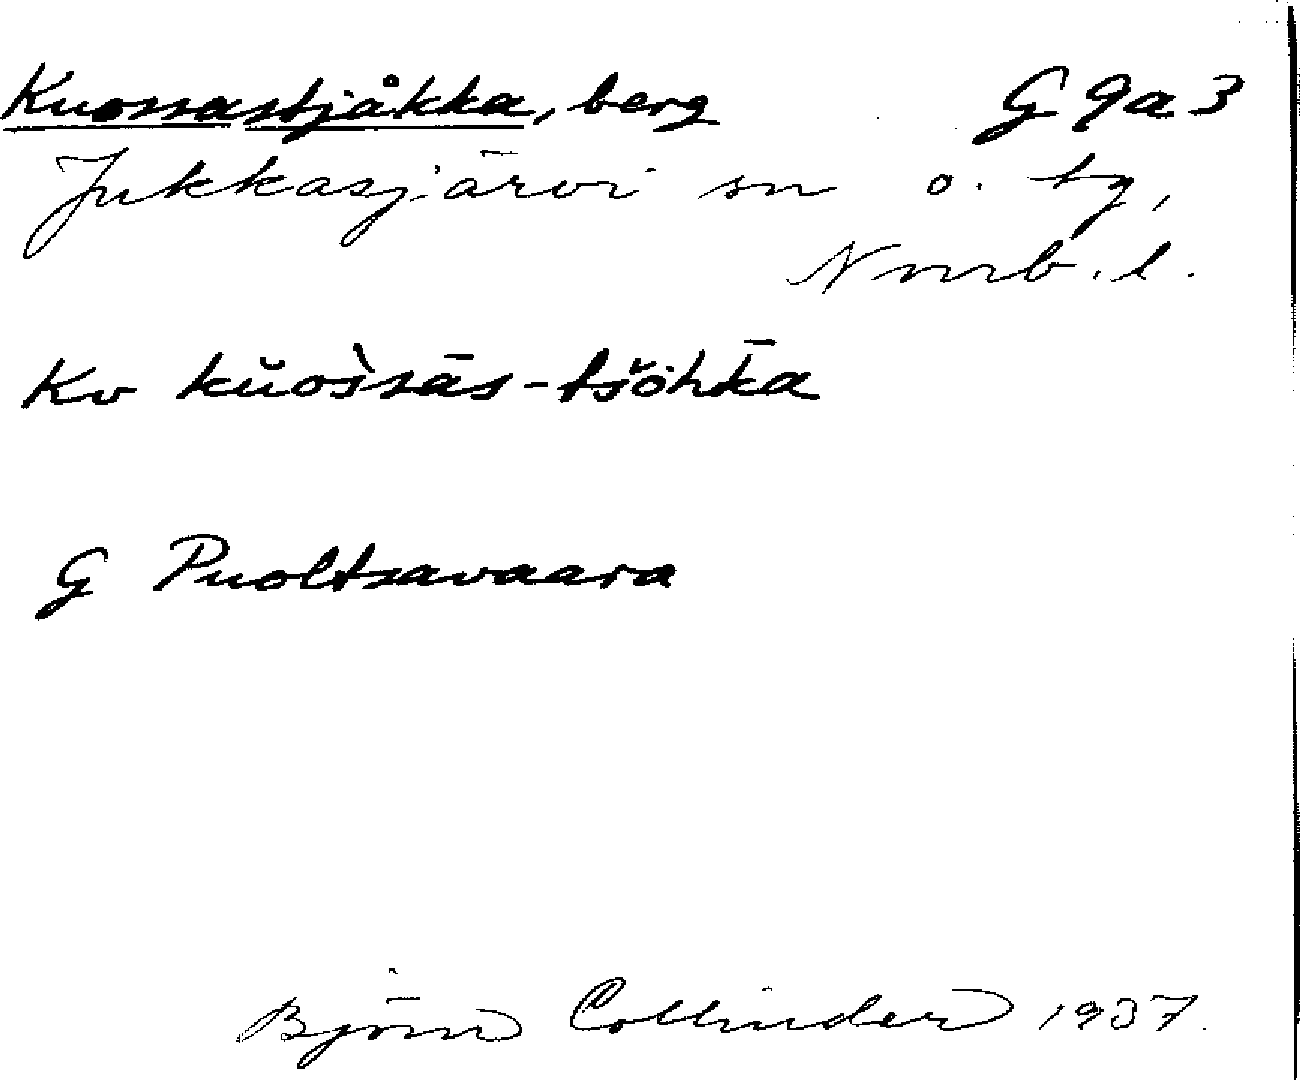 Kuossastjåkka, berg G 9a 3
Jukkasjärvi sn o. tg,
Norrb. l.
Kv kŭoi̇̀ssās-tšŏhk̄a
G Puoltsavaara
Björn Collinder 1937.